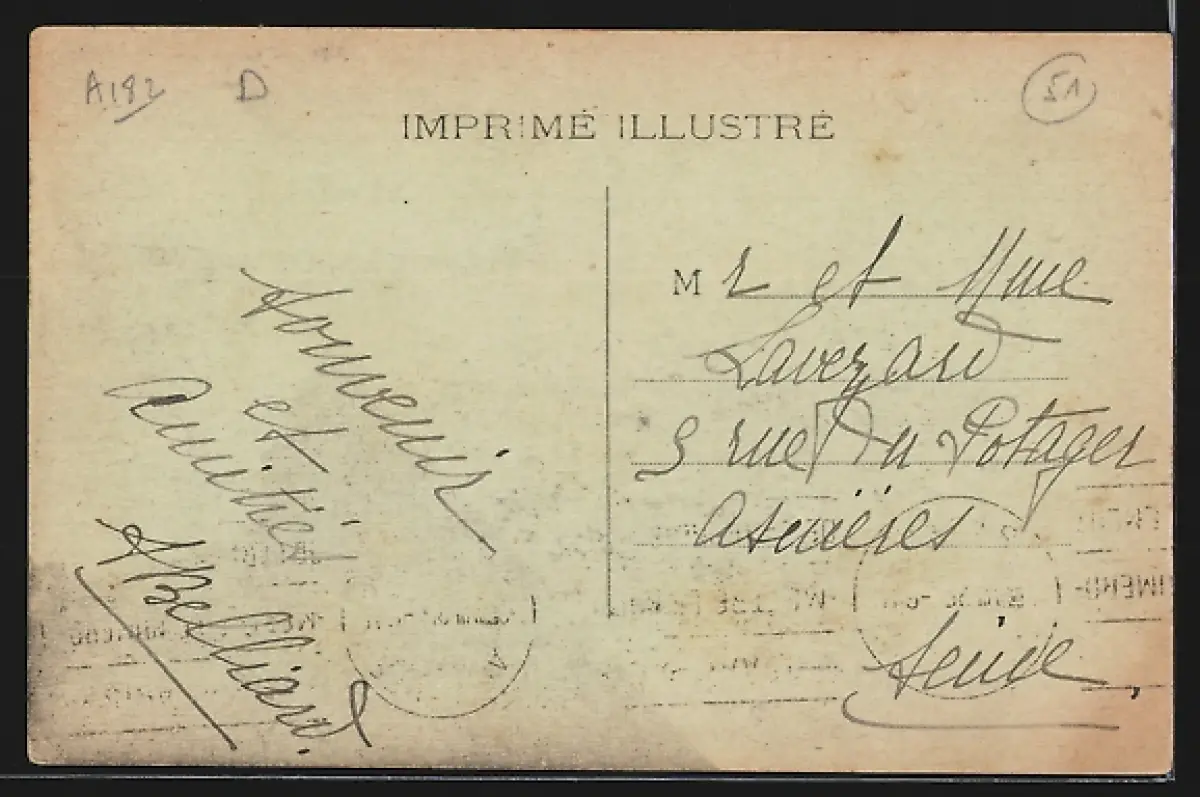 A182 D
51
IMPRIMÉ ILLUSTRÉ
Souvenir
et
amitié
ABelliard.
Mr et Mme
Lavezard
9 rue du Potager
Asnières
Seine